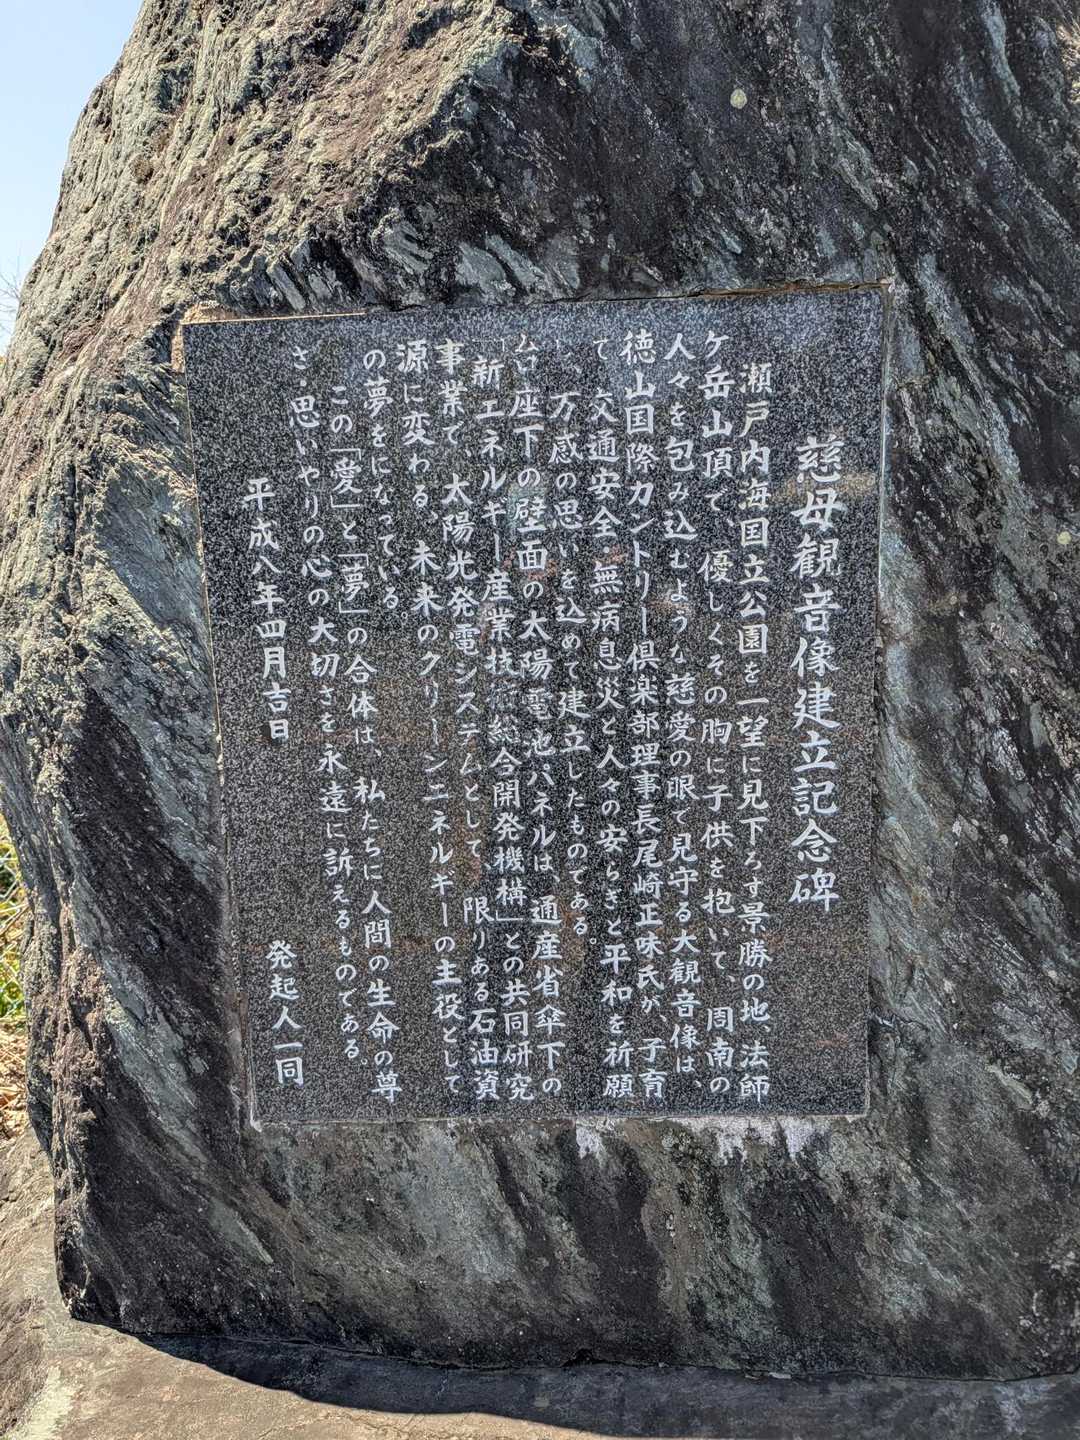 慈母観音像建立記念碑
瀬戸内海国立公園を一望に見下ろす景勝の地、法師
ケ岳山頂で、優しくその胸に子供を抱いて、周南の
人々を包み込むような慈愛の眼で見守る大観音像は、
徳山国際カントリー倶楽部理事長尾崎正味氏が、子育
て、交通安全・無病息災と人々の安らぎと平和を祈願
し、万感の思いを込めて建立したものである。
台座下の壁面の太陽電池パネルは、通産省傘下の
「新エネルギー産業技術総合開発機構」との共同研究
事業で、太陽光発電システムとして、限りある石油資
源に変わる、未来のクリーンエネルギーの主役として
の夢をになっている。
この「愛」と「夢」の合体は、私たちに人間の生命の尊
さ・思いやりの心の大切さを永遠に訴えるものである。
平成八年四月吉日
発起人一同